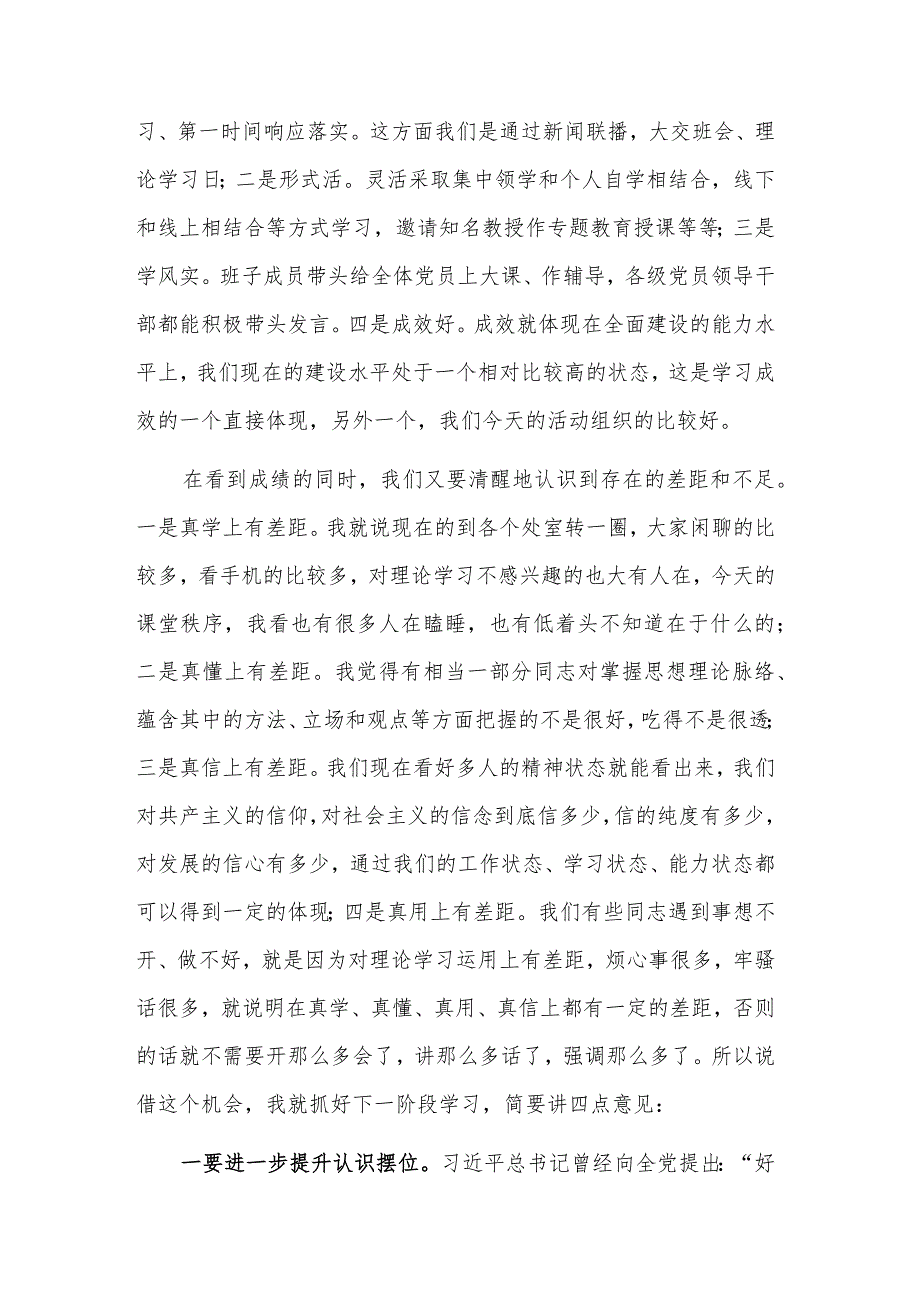 习、第一时间响应落实。这方面我们是通过新闻联播，大交班会、理
论学习日；二是形式活。灵活采取集中领学和个人自学相结合，线下
和线上相结合等方式学习，邀请知名教授作专题教育授课等等；三是
学风实。班子成员带头给全体党员上大课、作辅导，各级党员领导干
部都能积极带头发言。四是成效好。成效就体现在全面建设的能力水
平上，我们现在的建设水平处于一个相对比较高的状态，这是学习成
效的一个直接体现，另外一个，我们今天的活动组织的比较好。
在看到成绩的同时，我们又要清醒地认识到存在的差距和不足。
一是真学上有差距。我就说现在的到各个处室转一圈，大家闲聊的比
较多，看手机的比较多，对理论学习不感兴趣的也大有人在，今天的
课堂秩序，我看也有很多人在瞌睡，也有低着头不知道在于什么的；
二是真懂上有差距。我觉得有相当一部分同志对掌握思想理论脉络、
蕴含其中的方法、立场和观点等方面把握的不是很好，吃得不是很透；
三是真信上有差距。我们现在看好多人的精神状态就能看出来，我们
对共产主义的信仰，对社会主义的信念到底信多少，信的纯度有多少，
对发展的信心有多少，通过我们的工作状态、学习状态、能力状态都
可以得到一定的体现；四是真用上有差距。我们有些同志遇到事想不
开、做不好，就是因为对理论学习运用上有差距，烦心事很多，牢骚
话很多，就说明在真学、真懂、真用、真信上都有一定的差距，否则
的话就不需要开那么多会了，讲那么多话了，强调那么多了。所以说
借这个机会，我就抓好下一阶段学习，简要讲四点意见：
一要进一步提升认识摆位。习近平总书记曾经向全党提出：“好